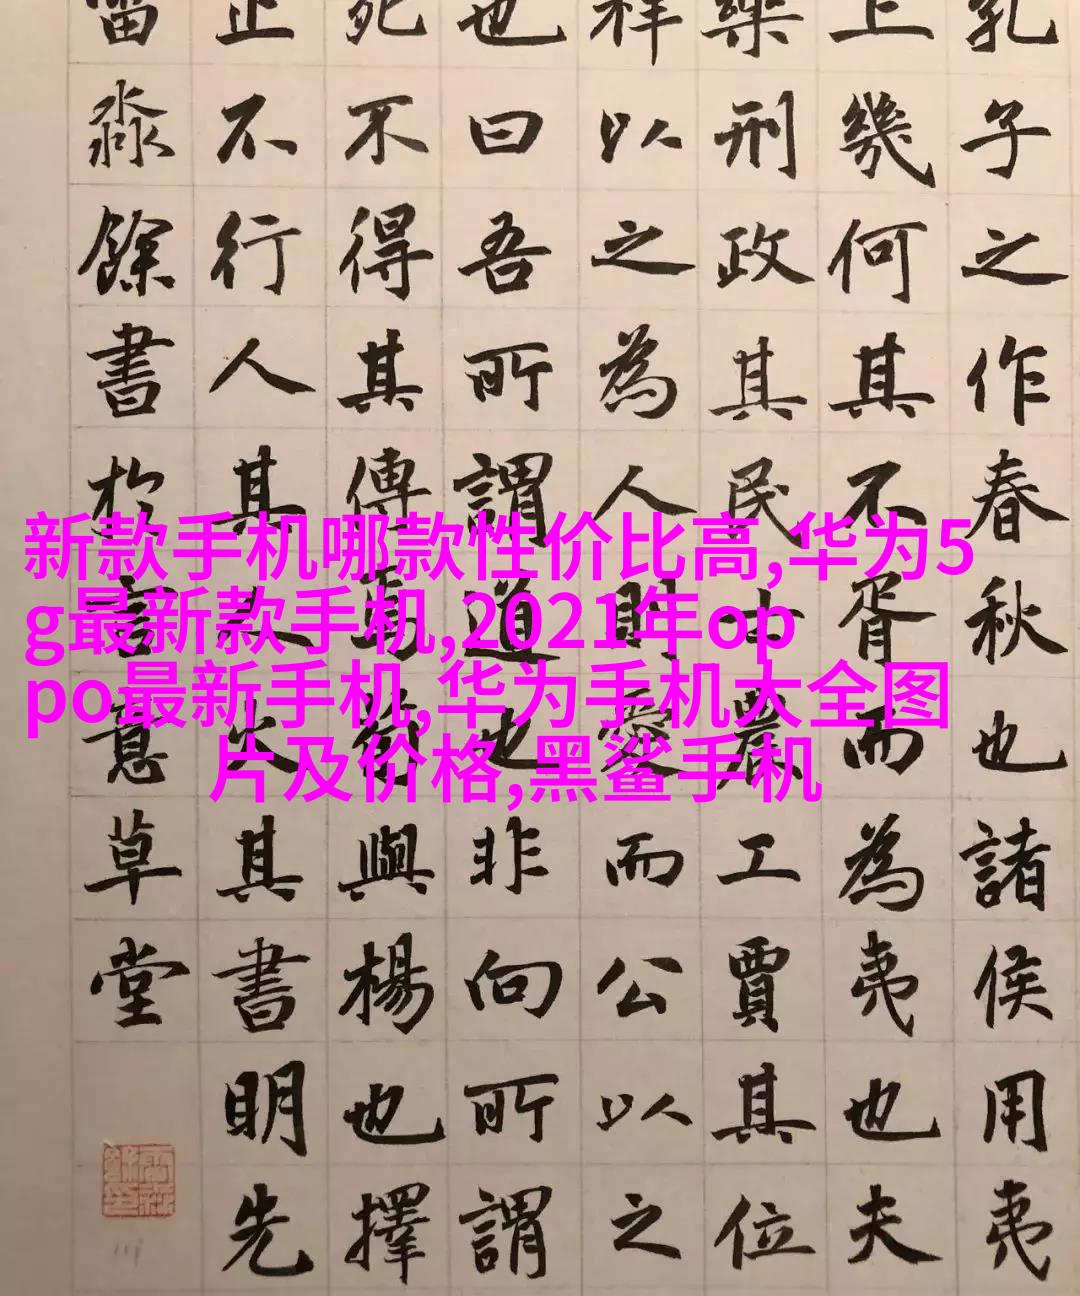 孔子之作春秋也諸侯用夷
上幾何其不胥而為夷也夫
樂刑政其民士農工賈其位
祥以之為人則愛而公以之
也曰吾所謂道也非向所謂
死不得其傳焉荀與楊也擇
止不行人其人火其書明先
淼餘書於言意草堂
新款手机哪款性价比高,华为5
g最新款手机,2021年op
po最新手机,华为手机大全图
片及价格,黑鲨手机